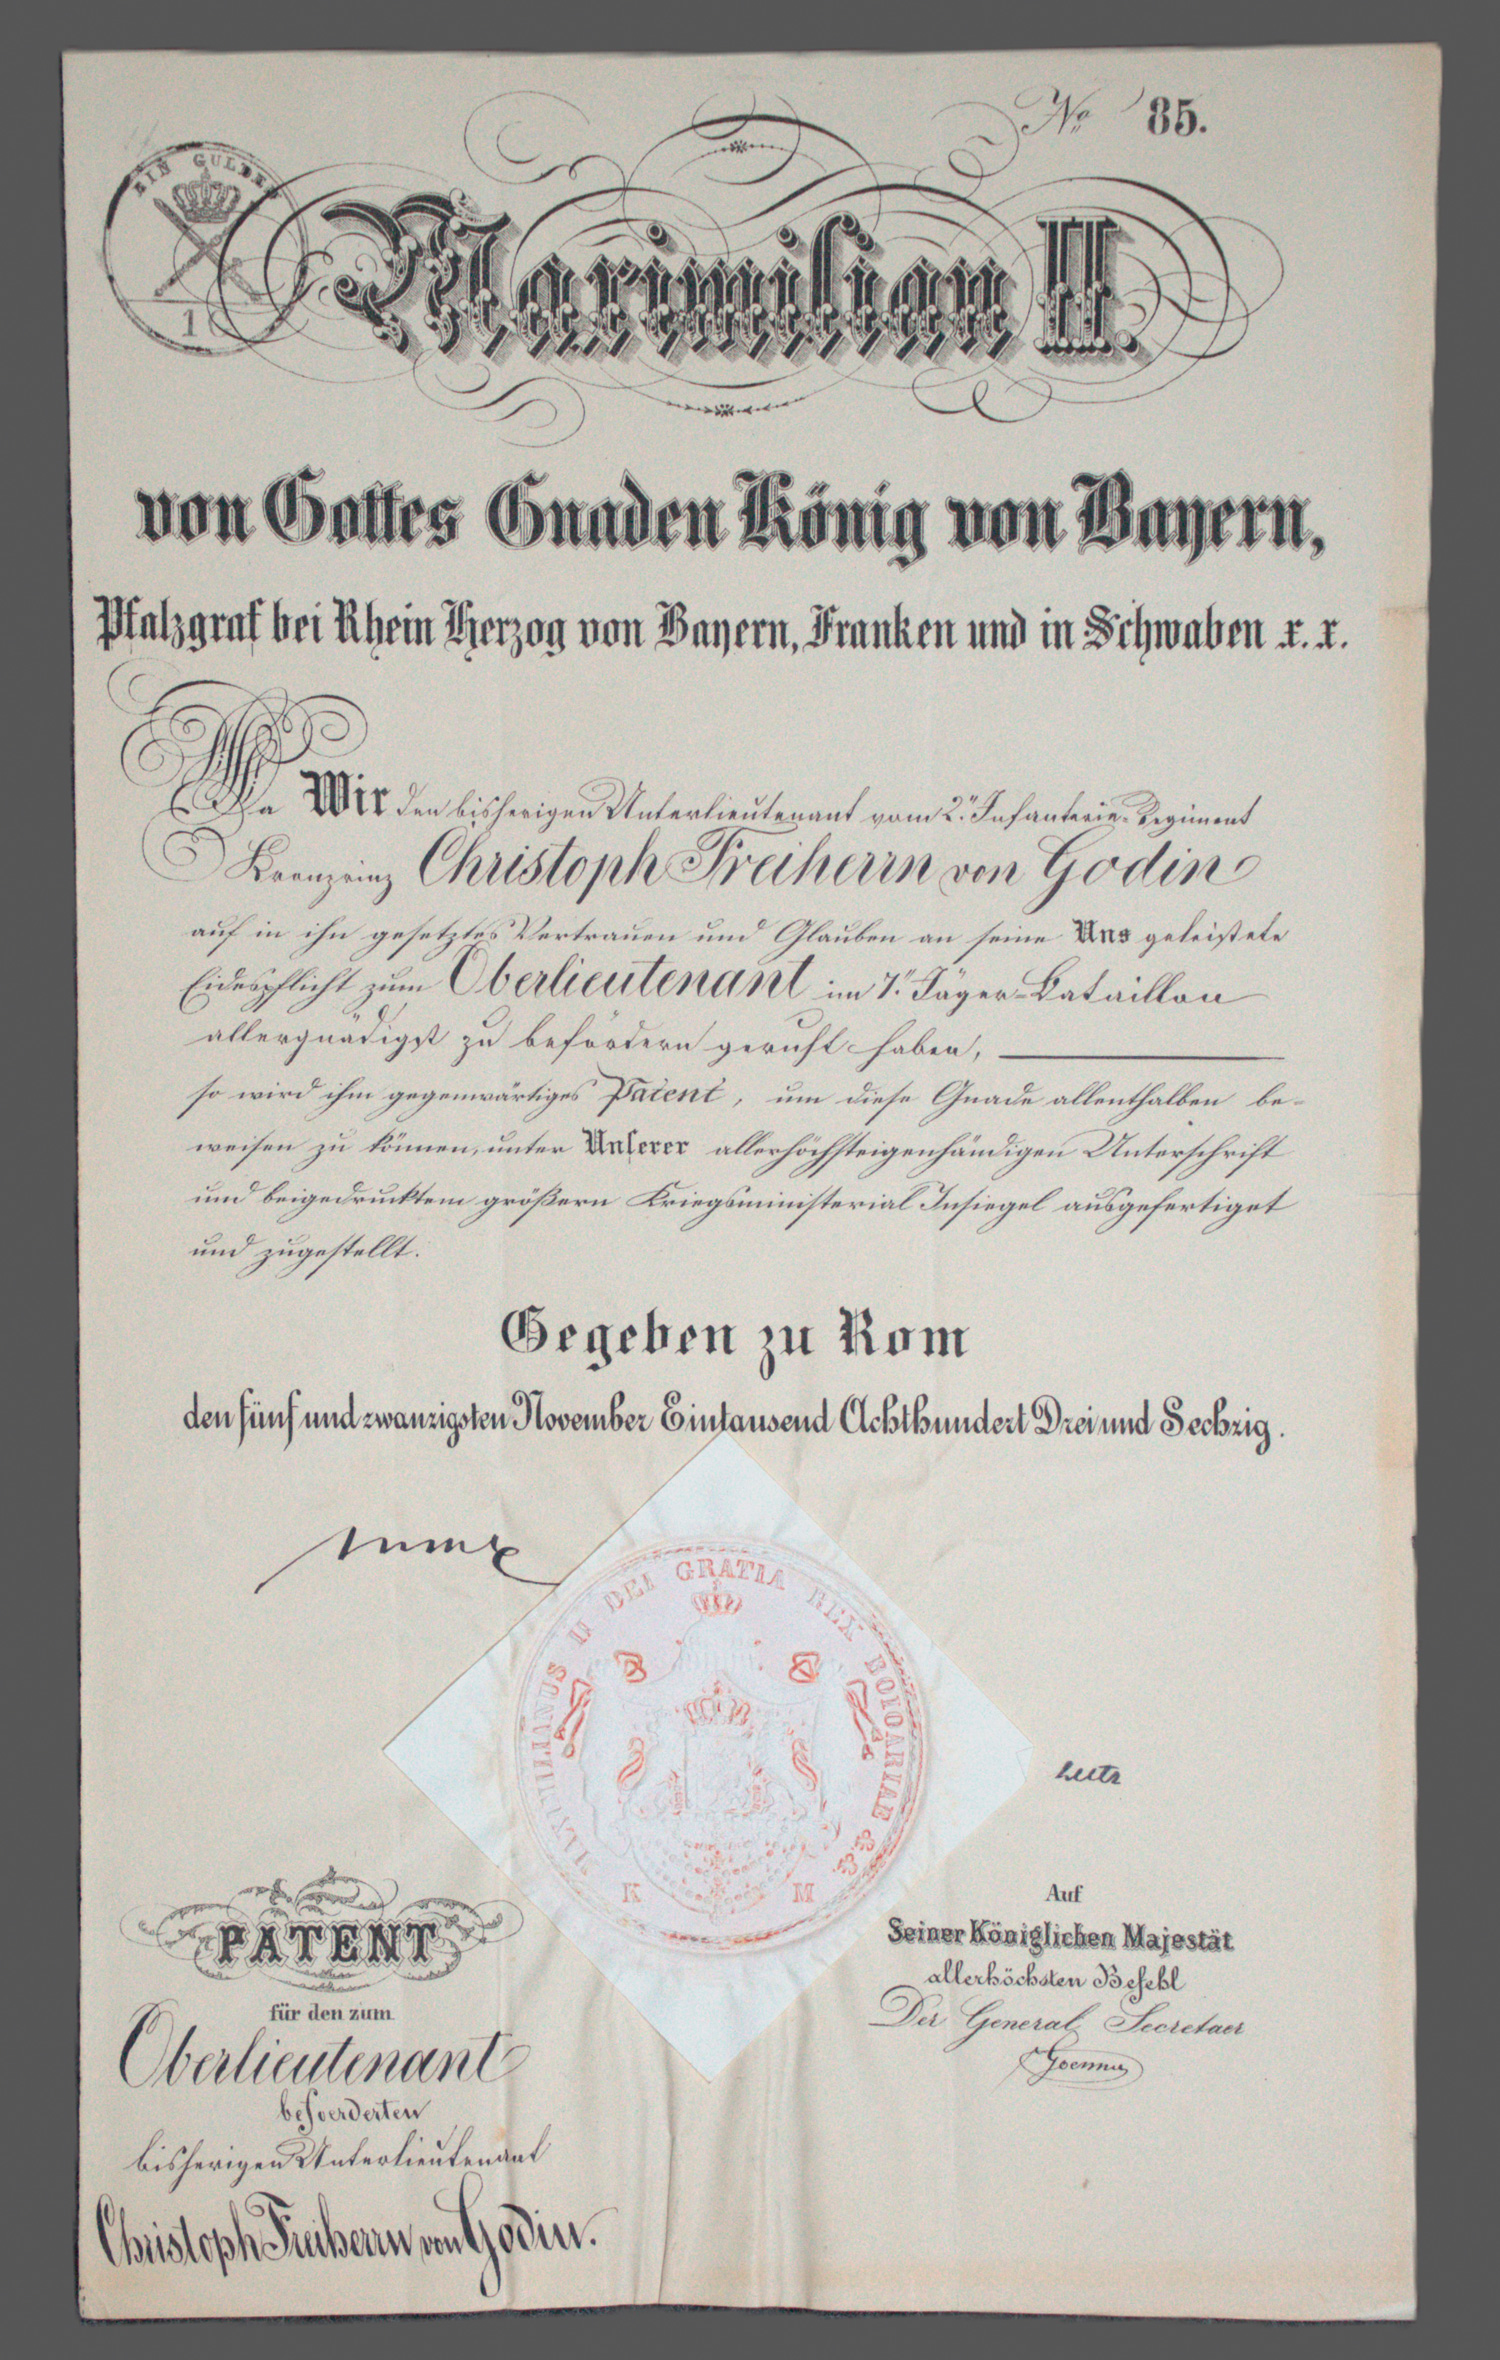 No 85.
EIN GULDEN
1
Maximilian II.
von Gottes Gnaden König von Bayern,
Pfalzgraf bei Rhein Herzog von Bayern, Franken und in Schwaben x. x.
Da Wir den bisherigen Unterlieutenant vom 2. Infanterie-Regiment
Kronprinz Christoph Freiherrn von Godin
auf in ihn gesetztes Vertrauen und Glauben an seine Uns geleistete
Eidespflicht zum Oberlieutenant im 7. Jäger-Bataillon
allergnädigst zu befördern geruht haben,
so wird ihm gegenwärtiges Patent, um diese Gnade allenthalben be-
weisen zu können, unter Unserer allerhöchsteigenhändigen Unterschrift
und beigedrucktem größern Kriegsministerial Insiegel ausgefertiget
und zugestellt.
Gegeben zu Rom
den fünf und zwanzigsten November Eintausend Achthundert Drei und Sechzig.
Max
MAXIMILIANUS II DEI GRATIA REX BOIOARIAE
K M
Lutz
Auf
Seiner Königlichen Majestät
allerhöchsten Befehl
Der General Secretaer
PATENT
für den zum
Oberlieutenant
befoerderten
bisherigen Unterlieutenant
Christoph Freiherrn von Godin.